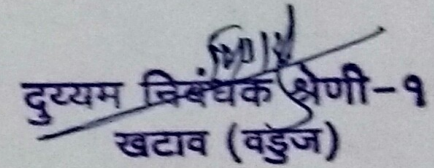 दुय्यम निबंधक श्रेणी-१
खटाव (वडुज)